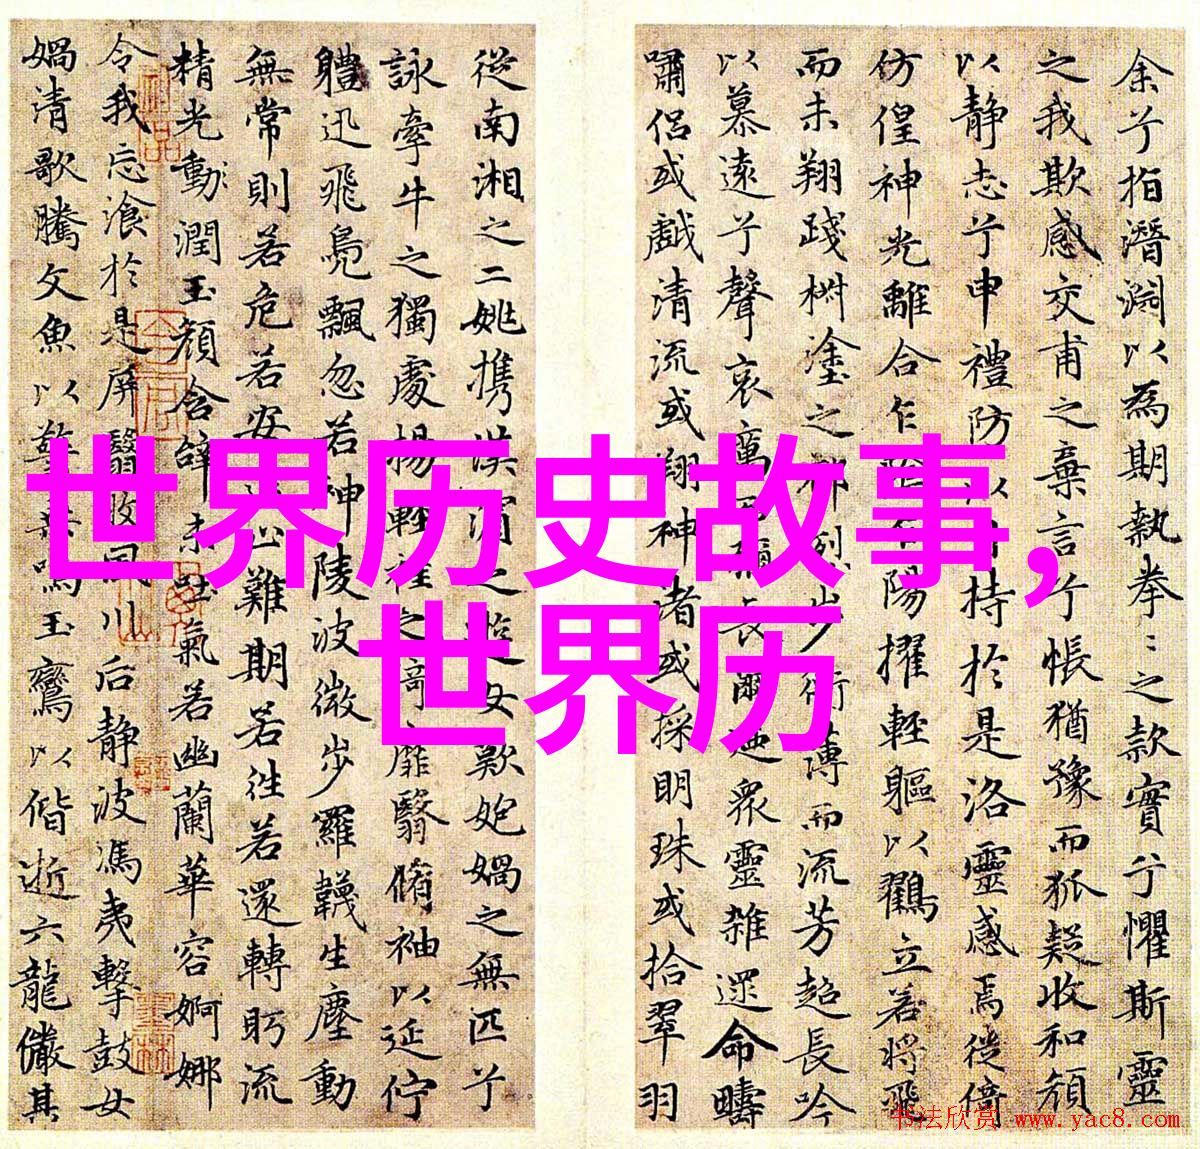 余兮指潛淵以為期執拳〻之款實兮懼斯靈
之我欺感交甫之棄言兮悵猶豫而狐疑收和顔
以静志兮申禮防以自持於是洛靈感焉徙倚
仿偟神光離合乍陰乍陽擢輕軀以鶴立若将飛
而未翔踐椒塗之郁烈步蘅薄而流芳超長吟
以慕遠兮聲哀厲而彌長爾迺衆靈雜遝命疇
嘯侶或戲清流或翔神渚或採明珠或拾翠羽
從南湘之二姚攜漢濱之遊女歎匏媧之無匹兮
詠牽牛之獨處揚輕袿之猗靡翳脩袖以延佇
軆迅飛鳧飄忽若神陵波微步羅韈生塵動
無常則若危若安進止難期若往若還轉眄流
精光動潤玉顔含辭未吐氣若幽蘭華容婀娜
令我忘飡於是屏翳收風川后静波馮夷擊鼓女
媧清歌騰文魚以警乘鳴玉鸞以偕逝六龍儼其
世界历史故事,
世界历
书法欣赏 www.yac8.com